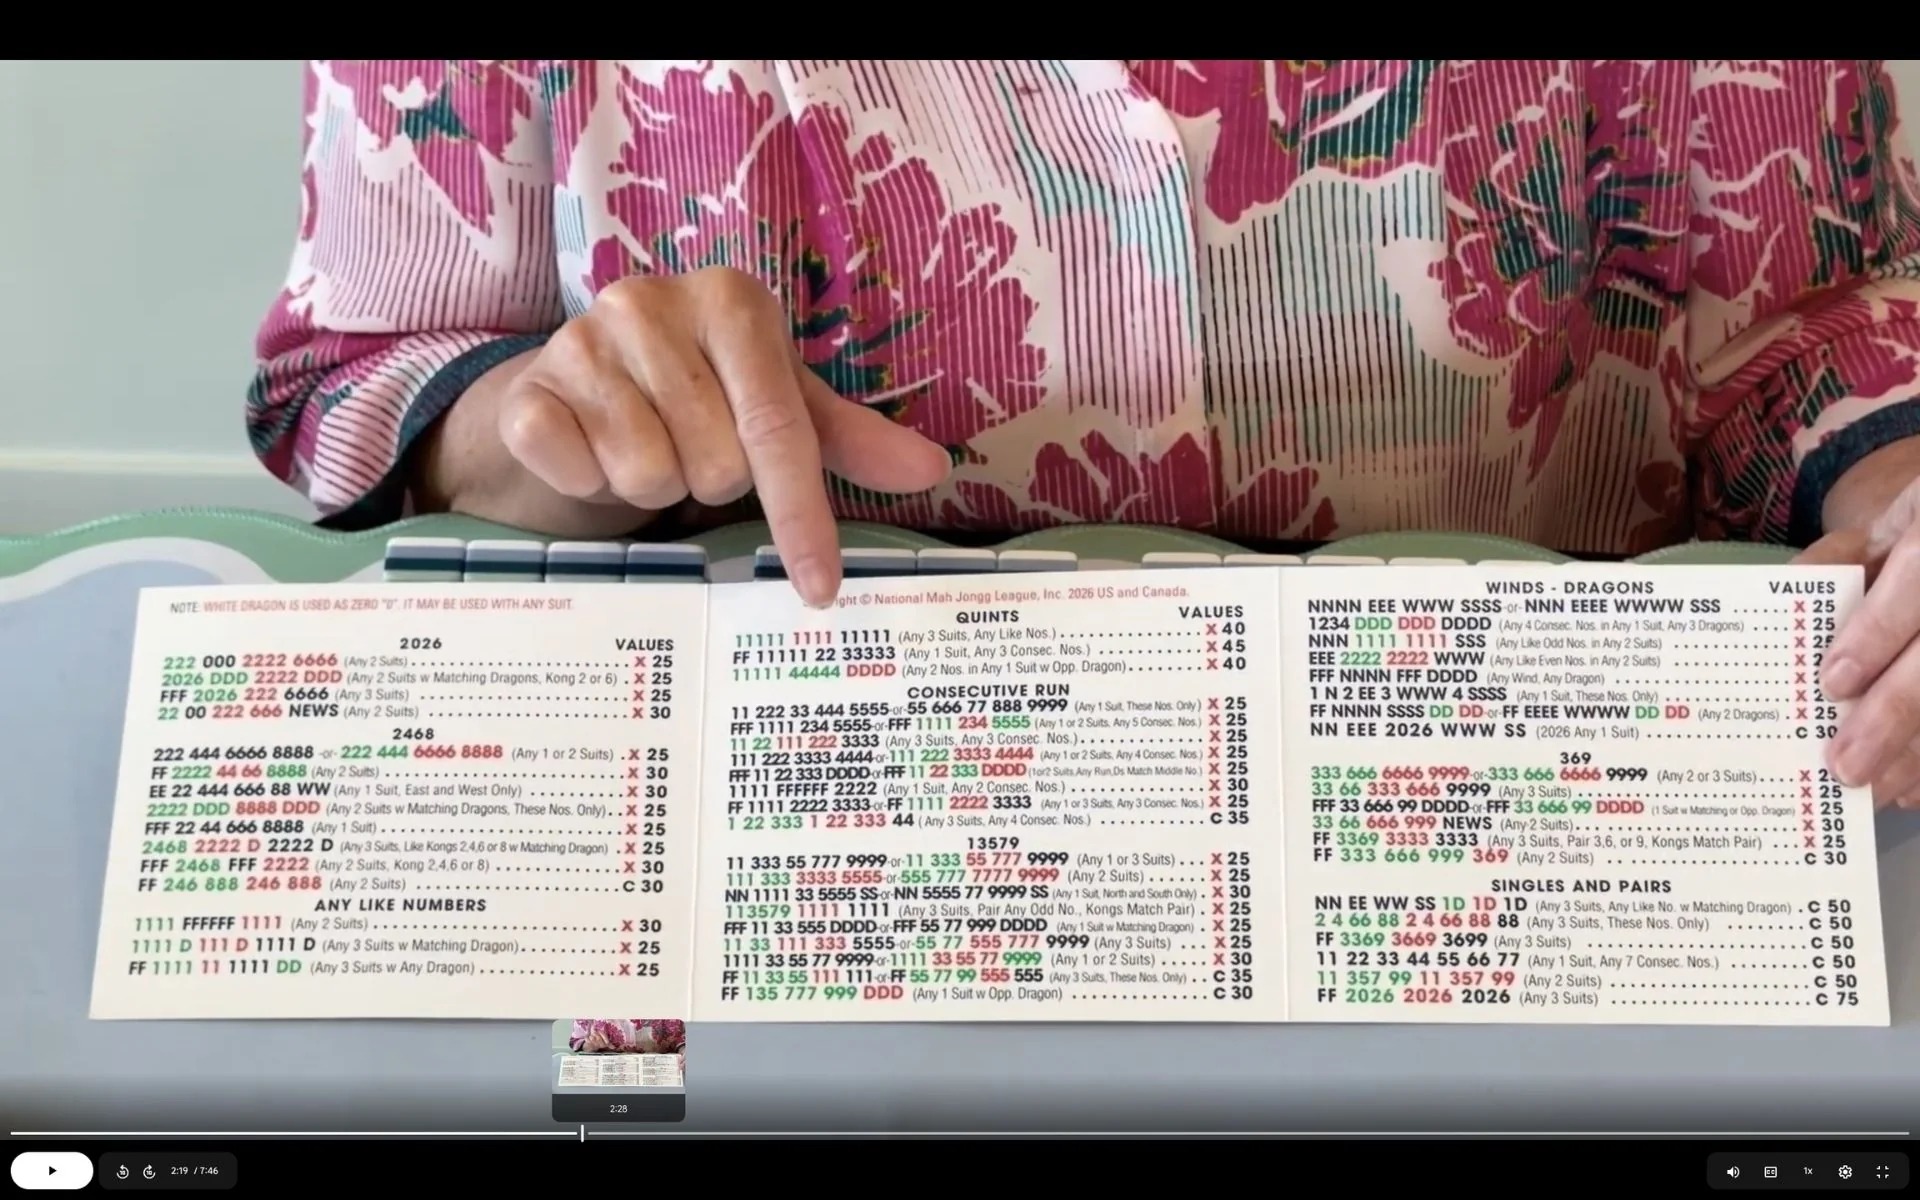 NOTE: WHITE DRAGON IS USED AS ZERO "0". IT MAY BE USED WITH ANY SUIT.
2026 VALUES
222 000 2222 6666 (Any 2 Suits) X 25
2026 DDD 2222 DDD (Any 2 Suits w Matching Dragons, Kong 2 or 6) X 25
FFF 2026 222 6666 (Any 3 Suits) X 25
22 00 222 666 NEWS (Any 2 Suits) X 30
2468
222 444 6666 8888 -or- 222 444 6666 8888 (Any 1 or 2 Suits) X 25
FF 2222 44 66 8888 (Any 2 Suits) X 30
EE 22 444 666 88 WW (Any 1 Suit, East and West Only) X 30
2222 DDD 8888 DDD (Any 2 Suits w Matching Dragons, These Nos. Only) X 25
FFF 22 44 666 8888 (Any 1 Suit) X 25
2468 2222 D 2222 D (Any 3 Suits, Like Kongs 2,4,6 or 8 w Matching Dragon) X 25
FFF 2468 FFF 2222 (Any 2 Suits, Kong 2,4,6 or 8) X 30
FF 246 888 246 888 (Any 2 Suits) C 30
ANY LIKE NUMBERS
1111 FFFFFF 1111 (Any 2 Suits) X 30
1111 D 111 D 1111 D (Any 3 Suits w Matching Dragon) X 25
FF 1111 11 1111 DD (Any 3 Suits w Any Dragon) X 25
ght © National Mah Jongg League, Inc. 2026 US and Canada.
QUINTS VALUES
11111 1111 11111 (Any 3 Suits, Any Like Nos.) X 40
FF 11111 22 33333 (Any 1 Suit, Any 3 Consec. Nos.) X 45
11111 44444 DDDD (Any 2 Nos. in Any 1 Suit w Opp. Dragon) X 40
CONSECUTIVE RUN
11 222 33 444 5555-or-55 666 77 888 9999 (Any 1 Suit, These Nos. Only) X 25
FFF 1111 234 5555-or-FFF 1111 234 5555 (Any 1 or 2 Suits, Any 5 Consec. Nos.) X 25
11 22 111 222 3333 (Any 3 Suits, Any 3 Consec. Nos.) X 25
111 222 3333 4444-or-111 222 3333 4444 (Any 1 or 2 Suits, Any 4 Consec. Nos.) X 25
FFF 11 22 333 DDDD-or-FFF 11 22 333 DDDD (1 or 2 Suits, Any Run, Ds Match Middle No.) X 25
1111 FFFFFF 2222 (Any 1 Suit, Any 2 Consec. Nos.) X 30
FF 1111 2222 3333-or-FF 1111 2222 3333 (Any 1 or 3 Suits, Any 3 Consec. Nos.) X 25
1 22 333 1 22 333 44 (Any 3 Suits, Any 4 Consec. Nos.) C 35
13579
11 333 55 777 9999-or-11 333 55 777 9999 (Any 1 or 3 Suits) X 25
111 333 3333 5555-or-555 777 7777 9999 (Any 2 Suits) X 25
NN 1111 33 5555 SS-or-NN 5555 77 9999 SS (Any 1 Suit, North and South Only) X 30
113579 1111 1111 (Any 3 Suits, Pair Any Odd No., Kongs Match Pair) X 25
FFF 11 33 555 DDDD-or-FFF 55 77 999 DDDD (Any 1 Suit w Matching Dragon) X 25
11 33 111 333 5555-or-55 77 555 777 9999 (Any 3 Suits) X 25
1111 33 55 77 9999-or-1111 33 55 77 9999 (Any 1 or 2 Suits) X 30
FF 11 33 55 111 111-or-FF 55 77 99 555 555 (Any 3 Suits, These Nos. Only) C 35
FF 135 777 999 DDD (Any 1 Suit w Opp. Dragon) C 30
WINDS - DRAGONS VALUES
NNNN EEE WWW SSSS-or-NNN EEEE WWWW SSS X 25
1234 DDD DDD DDDD (Any 4 Consec. Nos. in Any 1 Suit, Any 3 Dragons) X 25
NNN 1111 1111 SSS (Any Like Odd Nos. in Any 2 Suits) X 25
EEE 2222 2222 WWW (Any Like Even Nos. in Any 2 Suits) X 2
FFF NNNN FFF DDDD (Any Wind, Any Dragon) X
1 N 2 EE 3 WWW 4 SSSS (Any 1 Suit, These Nos. Only) X 2
FF NNNN SSSS DD DD-or-FF EEEE WWWW DD DD (Any 2 Dragons) X 25
NN EEE 2026 WWW SS (2026 Any 1 Suit) C 30
369
333 666 6666 9999-or-333 666 6666 9999 (Any 2 or 3 Suits) X 2
33 66 333 666 9999 (Any 3 Suits) X 25
FFF 33 666 99 DDDD-or-FFF 33 666 99 DDDD (1 Suit w Matching or Opp. Dragon) X 25
33 66 666 999 NEWS (Any 2 Suits) X 30
FF 3369 3333 3333 (Any 3 Suits, Pair 3,6, or 9, Kongs Match Pair) X 25
FF 333 666 999 369 (Any 2 Suits) C 30
SINGLES AND PAIRS
NN EE WW SS 1D 1D 1D (Any 3 Suits, Any Like No. w Matching Dragon) C 50
2 4 66 88 2 4 66 88 88 (Any 3 Suits, These Nos. Only) C 50
FF 3369 3669 3699 (Any 3 Suits) C 50
11 22 33 44 55 66 77 (Any 1 Suit, Any 7 Consec. Nos.) C 50
11 357 99 11 357 99 (Any 2 Suits) C 50
FF 2026 2026 2026 (Any 3 Suits) C 75
2:28
2:19 / 7:46
1x